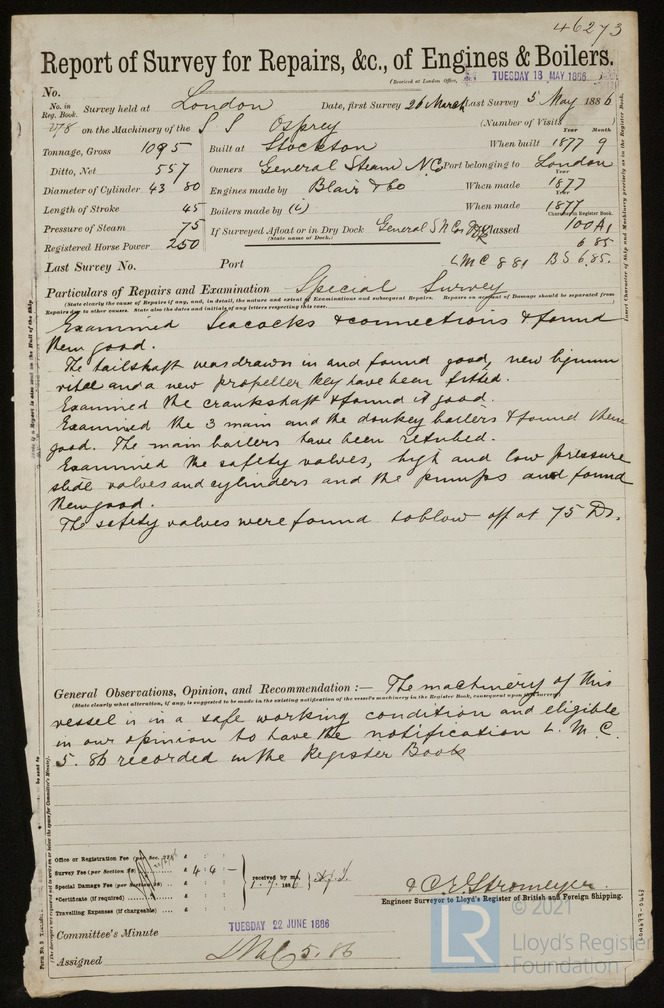 46273
Report of Survey for Repairs, &c., of Engines & Boilers.
(Received at London Office, TUESDAY 18 MAY 1886
No.
No. in Reg. Book. Survey held at London Date, first Survey 26 March Last Survey 5 May 1886
278 on the Machinery of the S S Osprey (Number of Visits
Tonnage, Gross 1095 Built at Stockton When built 1877 9 Year Month
Ditto, Net 557 Owners General Steam N. Co Port belonging to London
Diameter of Cylinder 43 80 Engines made by Blair & Co When made 1877 Year
Length of Stroke 45 Boilers made by When made 1877 Year
Pressure of Steam 75 If Surveyed Afloat or in Dry Dock General S N Co Classed 100A1 Character in Register Book.
(State name of Dock.)
Registered Horse Power 250 6 85
Last Survey No. Port LMC 8 81 BS 6.85.
Particulars of Repairs and Examination Special Survey
(State clearly the cause of Repairs if any, and, in detail, the nature and extent of Examinations and subsequent Repairs. Repairs on account of Damage should be separated from
Repairs due to other causes. State also the dates and initials of any letters respecting this case.)
Examined Seacocks & connections & found
them good.
The tailshaft was drawn in and found good, new lignum
vitae and a new propeller key have been fitted.
Examined the crankshaft & found it good.
Examined the 3 main and the donkey boilers & found them
good. The main boilers have been retubed.
Examined the safety valves, high and low pressure
slide valves and cylinders and the pumps and found
them good.
The safety valves were found to blow off at 75 lbs.
General Observations, Opinion, and Recommendation :— The machinery of this
(State clearly what alteration, if any, is suggested to be made in the existing notification of the vessel's machinery in the Register Book, consequent upon this survey)
vessel is in a safe working condition and eligible
in our opinion to have the notification L. M. C.
5. 86 recorded in the Register Book
Office or Registration Fee (per Sec. 28) £ : :
Survey Fee (per Section 28) £ 4 : 4 : –
Special Damage Fee (per Section 28) £ : :
*Certificate (if required) £ : :
Travelling Expenses (if chargeable) £ : :
received by me, 188
C. E. Stromeyer.
Engineer Surveyor to Lloyd's Register of British and Foreign Shipping.
Committee's Minute TUESDAY 22 JUNE 1886
Assigned LMC 5. 86
Insert Character of Ship and Machinery precisely as in the Register Book.
LR
© 2021
Lloyd's Register
Foundation